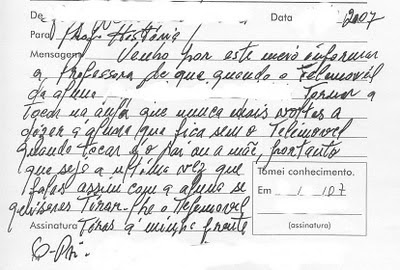 De Data 2007
Para Prof. História /
Mensagem Venho por este meio informar
a professora de que quando o Telemovel
da aluna Tornar a
tocar na aula que nunca mais volta a
dizer a aluna que fica sem o Telemovel
quando tocar é o pai ou a mãe, portanto
que seja a ultima vez que
falas assim com a aluna se
quiseres Tirar-lhe o Telemovel
Assinatura Tiras á minha frente
O Pai.
Tomei conhecimento.
Em / 1 / 07
(assinatura)